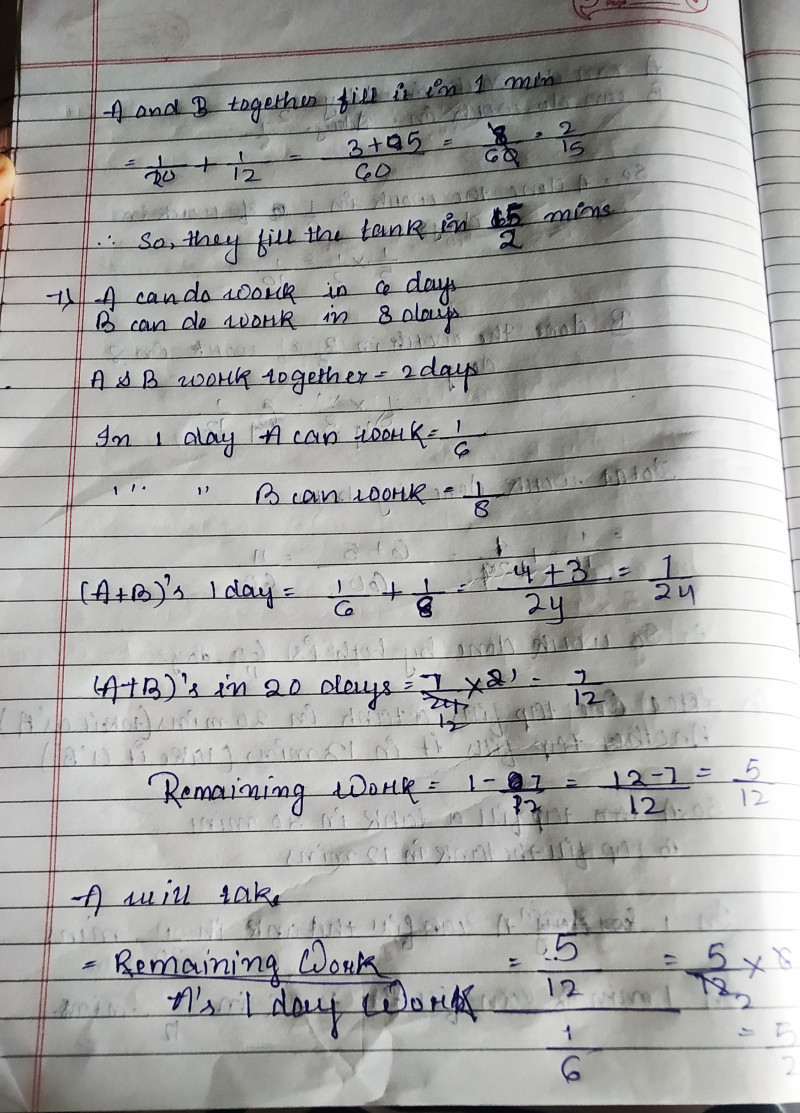 A and B together fill it in 1 min
= 1/20 + 1/12 = 3+5/60 = 8/60 = 2/15
∴ So, they fill the tank in 15/2 mins
7) A can do work in 6 days
B can do work in 8 days
A & B work together = 2 days
In 1 day A can work = 1/6
" " B can work = 1/8
(A+B)'s 1 day = 1/6 + 1/8 = 4+3/24 = 1/24
(A+B)'s in 20 days = 7/24 12 × 2 1 = 7/12
Remaining work = 1 - 7/12 = 12-7/12 = 5/12
A will take
= Remaining Work / A's 1 day Work = 5/12 / 1/6 = 5/12 2 ×
= 5/2